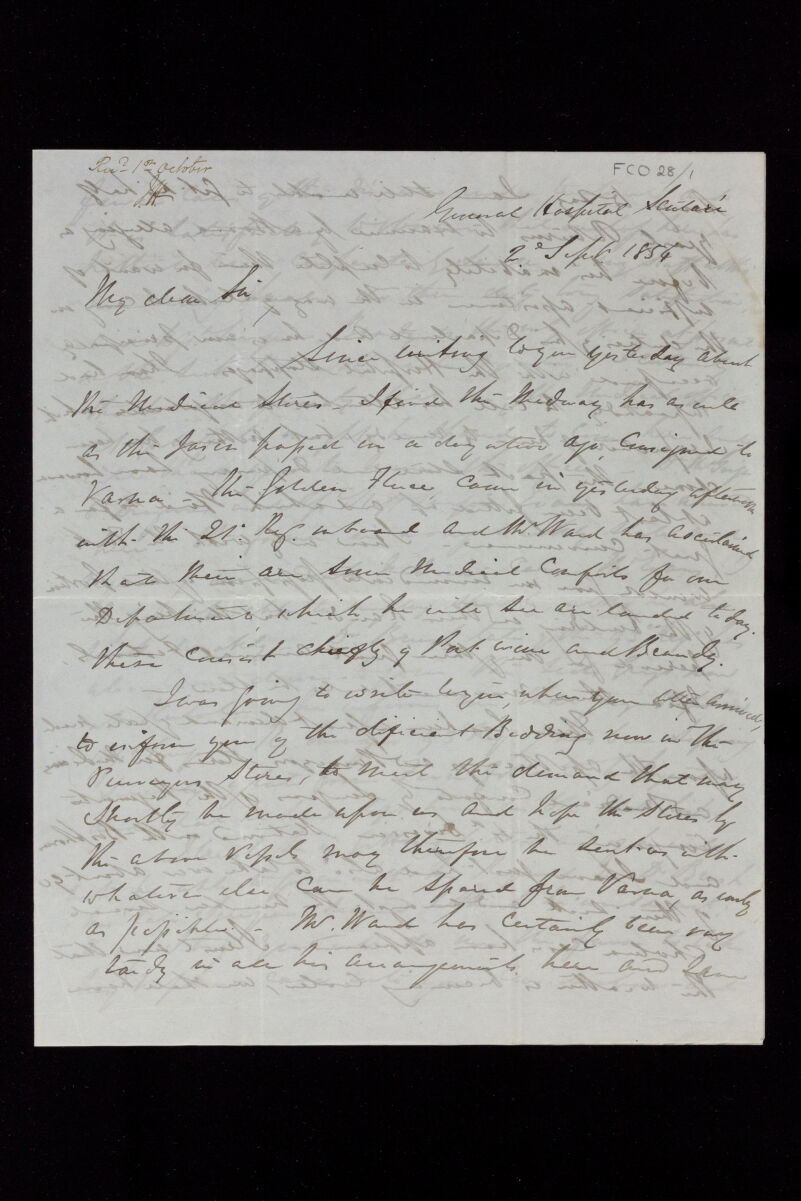 Recd 1st October
JH
FCO 28/1
General Hospital Scutari
2d Sept 1854
My dear Sir,
Since writing to you yesterday about
the Medical Stores – I find the Medway has as well
as the Jason passed on a day or two ago consigned to
Varna – The Golden Fleece came in yesterday afternoon
with the 21st Reg. onboard and Mr Ward has ascertained
that there are some Medical Comforts for our
Department, which he will see are landed to day.
these consist chiefly of Port wine and Brandy.
I was going to write to you, when your arrived,
to inform you of the deficient Bedding now in the
Purveyors Stores, to meet the demand that may
shortly be made upon us and hope the Stores by
the above Vessels may therefore be sent us with
whatever else can be spared from Varna, as early
as possible – Mr. Ward has certainly been very
tardy in all his arrangements here and I am